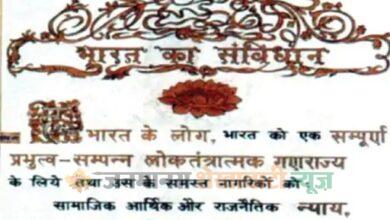 भारत का संविधान
हम भारत के लोग, भारत को एक सम्पूर्ण
प्रभुत्व-सम्पन्न लोकतंत्रात्मक गणराज्य
के लिये तथा उस के समस्त नागरिकों को
जनमानस शेखावाटी न्यूज
सामाजिक आर्थिक और राजनैतिक न्याय,